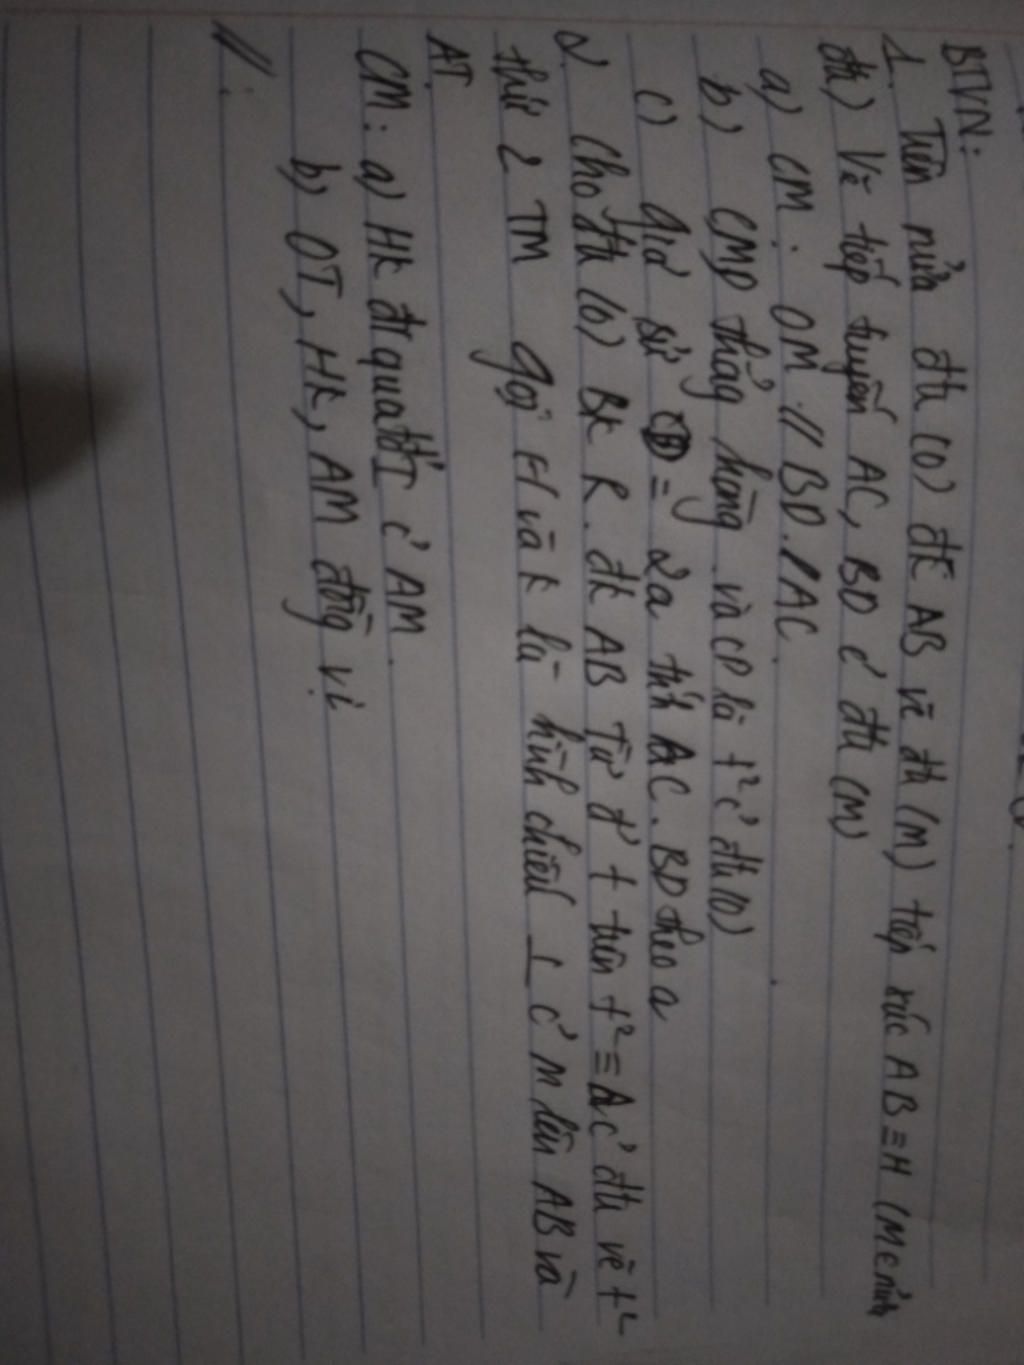 BTVN:
1. Trên nửa đtr (O) đk AB vẽ đtr (M) tiếp xúc AB ≡ H (M ∈ nửa
đtr) Vẽ tiếp tuyến AC, BD c' đtr (M)
a) CM: OM // BD // AC.
b) CMD thẳng hàng và CD là t² c' đtr (O)
c) Giả sử CD = 2a tính AC. BD theo a
2. Cho đtr (O) BK R. đk AB Từ đ' T trên t² ≡ A c' đtr vẽ t²
thứ 2 TM Gọi H và K là hình chiếu ⊥ c' M lên AB và
AT.
CM: a) HK đi qua tđ I c' AM.
b) OT, HK, AM đồng vị